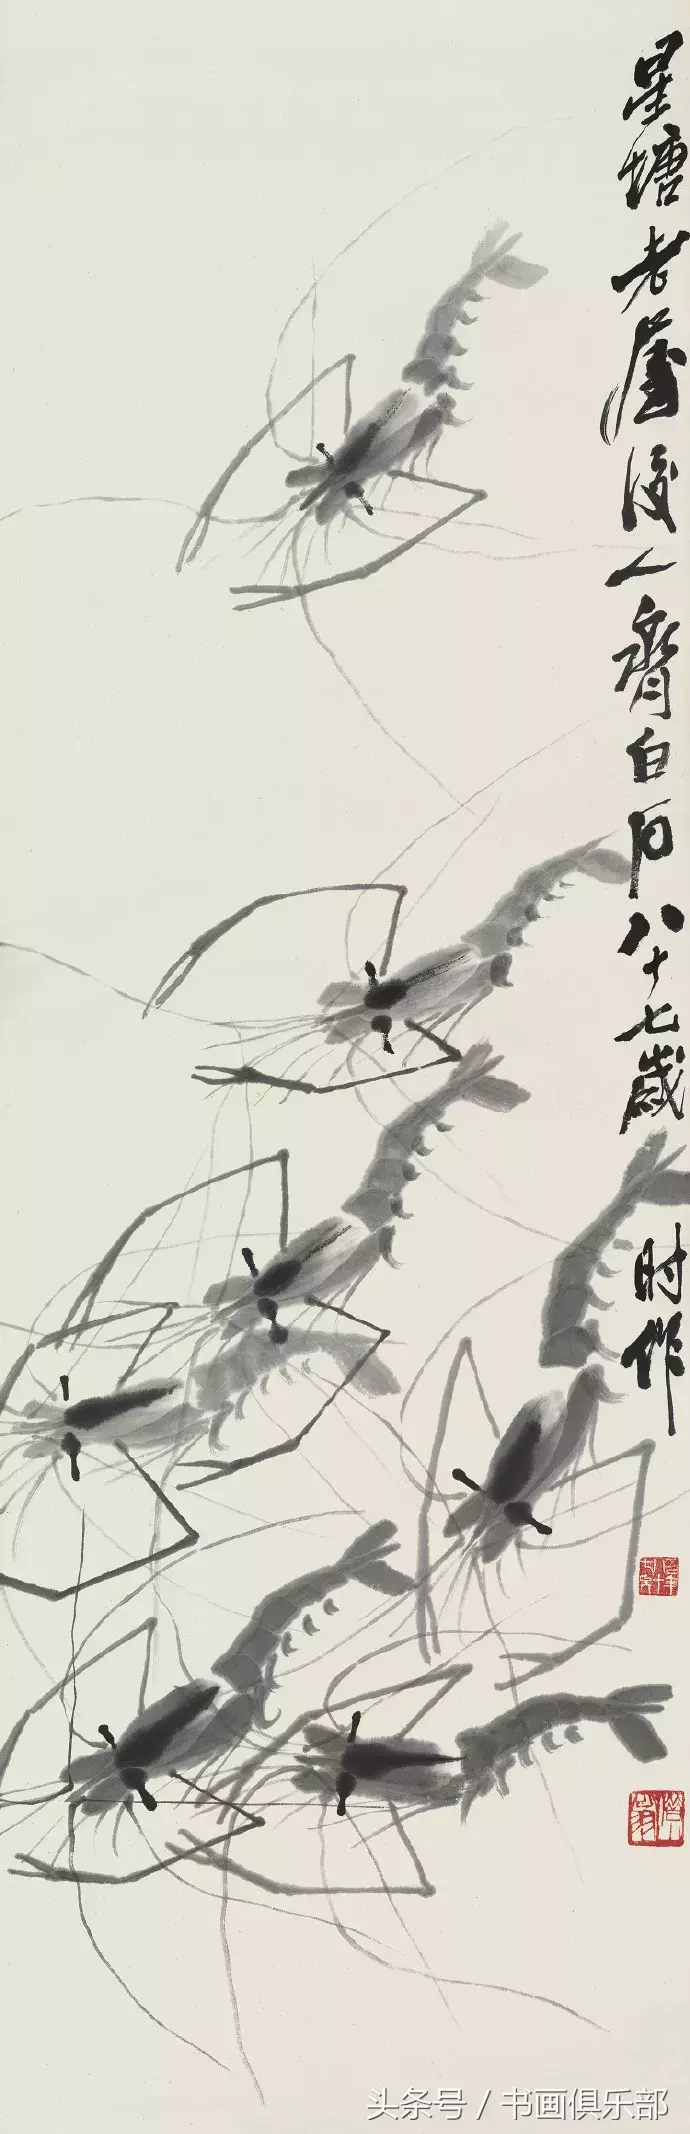 星塘老屋後人齊白石八十七歲时作
头条号 / 书画俱乐部